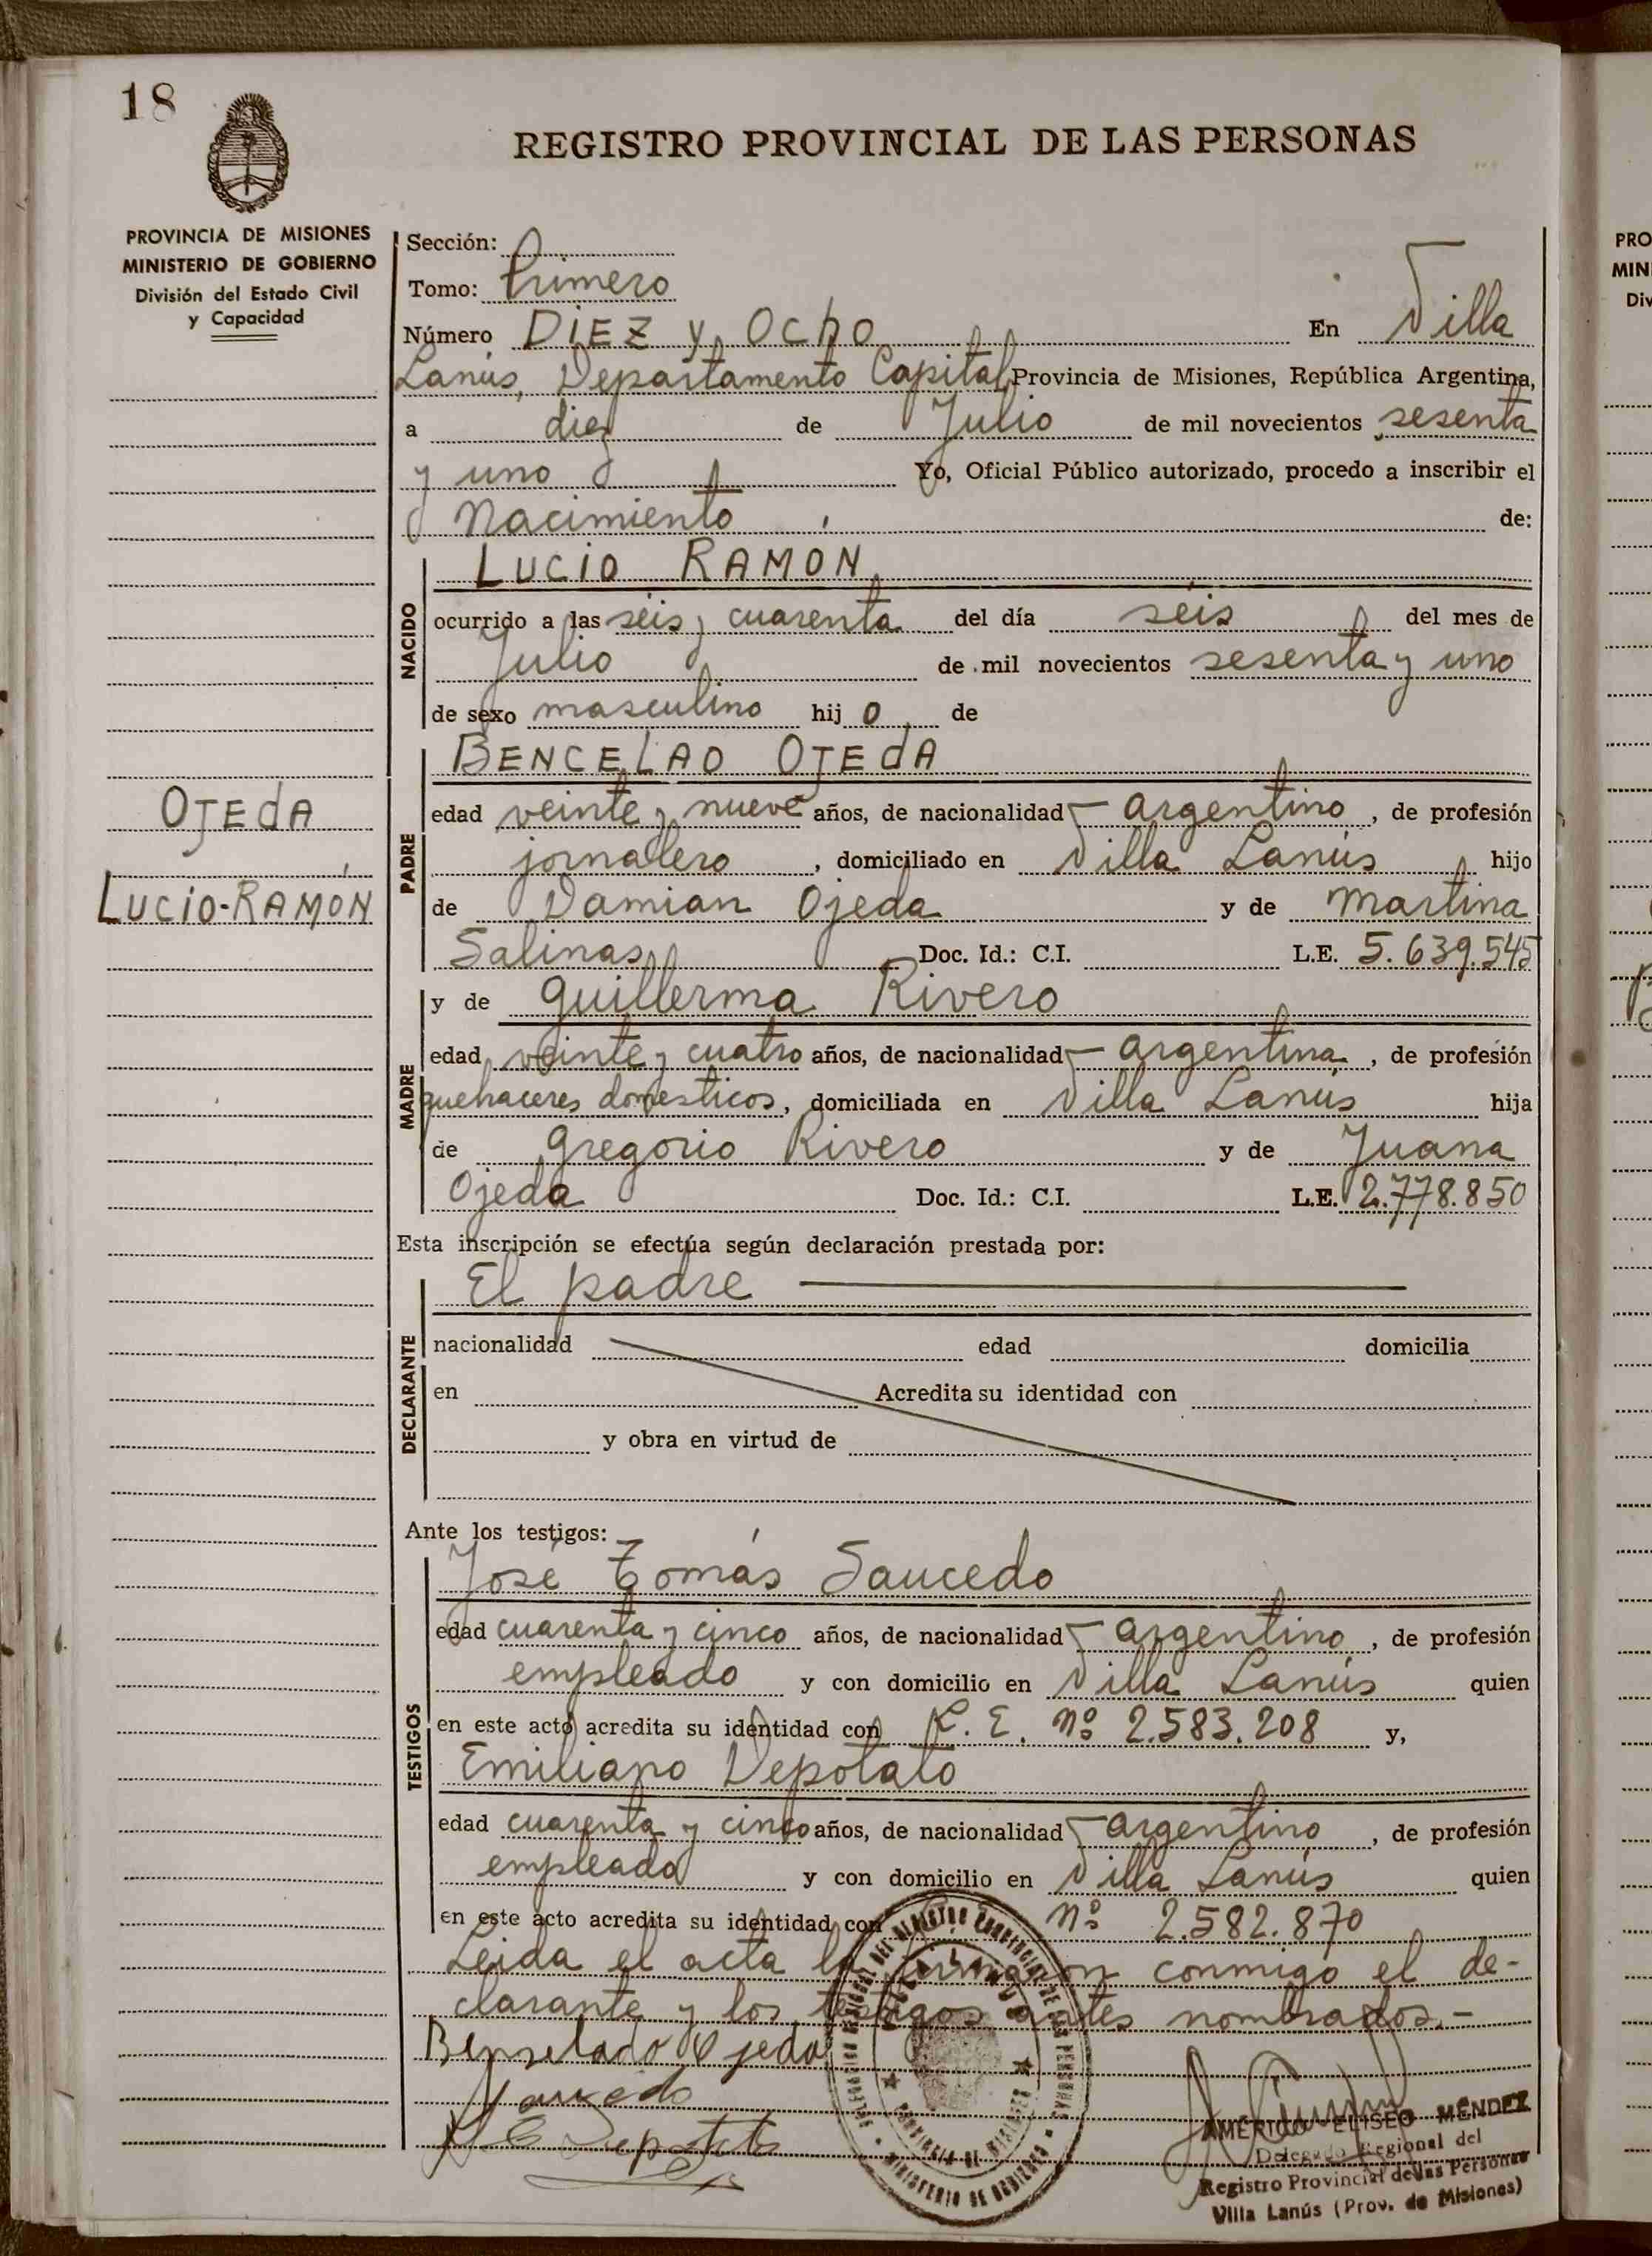 18
REGISTRO PROVINCIAL DE LAS PERSONAS
PROVINCIA DE MISIONES
MINISTERIO DE GOBIERNO
División del Estado Civil
y Capacidad
Sección:
Tomo: Primero
Número DiEZ y OCHO En Villa
Lanús, Departamento Capital Provincia de Misiones, República Argentina,
a diez de Julio de mil novecientos sesenta
y uno Yo, Oficial Público autorizado, procedo a inscribir el
Nacimiento de:
NACIDO
LUCiO RAMÓN
ocurrido a las seis y cuarenta del día seis del mes de
Julio de mil novecientos sesenta y uno
de sexo masculino hij o de
PADRE
BENCELAO OJEdA
edad veinte y nueve años, de nacionalidad argentino, de profesión
jornalero, domiciliado en Villa Lanús hijo
de Damian Ojeda y de Martina
Salinas Doc. Id.: C.I. L.E. 5.639.545
OJEdA
LUCiO-RAMÓN
MADRE
y de Guillerma Rivero
edad veinte y cuatro años, de nacionalidad argentina, de profesión
quehaceres domesticos, domiciliada en Villa Lanús hija
de Gregorio Rivero y de Juana
Ojeda Doc. Id.: C.I. L.E. 2.778.850
Esta inscripción se efectúa según declaración prestada por:
DECLARANTE
El padre
nacionalidad edad domicilia
en Acredita su identidad con
y obra en virtud de
Ante los testigos:
TESTIGOS
José Tomás Saucedo
edad cuarenta y cinco años, de nacionalidad argentino, de profesión
empleado y con domicilio en Villa Lanús quien
en este acto acredita su identidad con L. E. nº 2.583.208 y,
Emiliano Depotato
edad cuarenta y cinco años, de nacionalidad argentino, de profesión
empleado y con domicilio en Villa Lanús quien
en este acto acredita su identidad con nº 2.582.870
Leida el acta la firmaron conmigo el de-
clarante y los testigos antes nombrados.-
Benselado Ojeda
Saucedo
AMÉRICO ELISEO MÉNDEZ
Delegado Regional del
Registro Provincial de las Personas
Villa Lanús (Prov. de Misiones)
MINISTERIO DE GOBIERNO
PROVINCIA DE MISIONES
PRO
MIN
Div